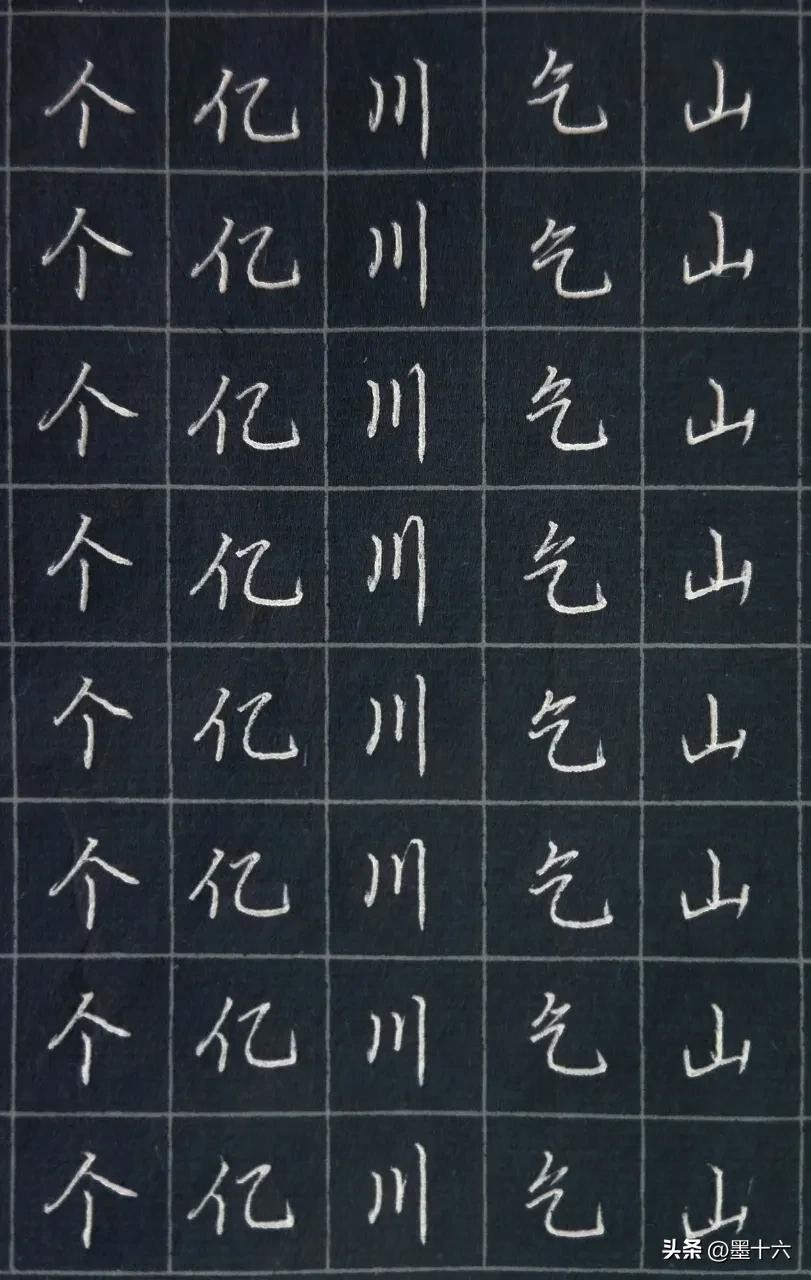 个 亿 川 乞 山
个 亿 川 乞 山
个 亿 川 乞 山
个 亿 川 乞 山
个 亿 川 乞 山
个 亿 川 乞 山
个 亿 川 乞 山
个 亿 川 乞 山
头条 @墨十六